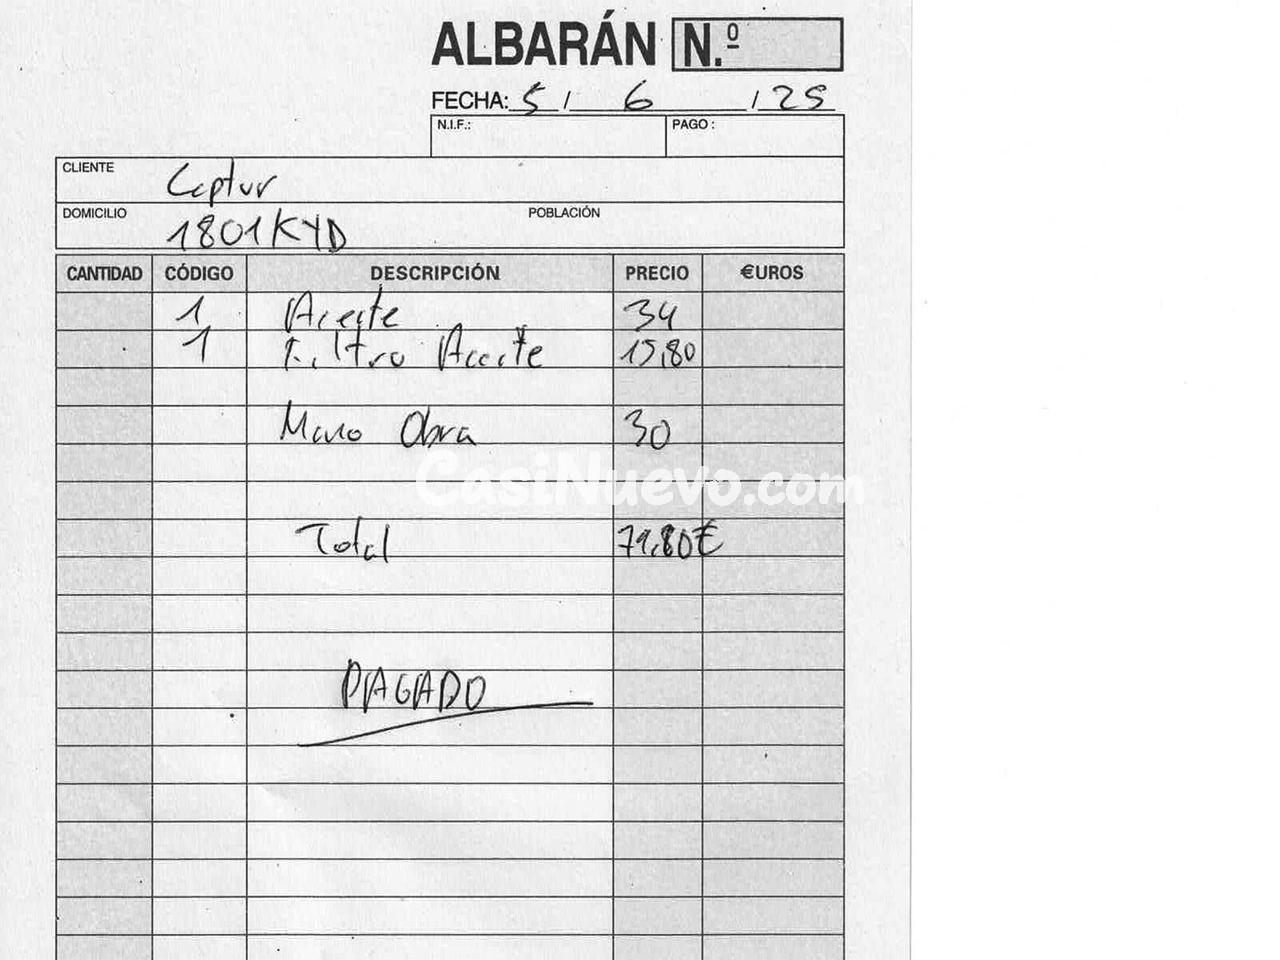 ALBARÁN N.º
FECHA: 5 / 6 / 25
N.I.F.: PAGO :
CLIENTE Captur
DOMICILIO 1801KYD POBLACIÓN
CANTIDAD CÓDIGO DESCRIPCIÓN PRECIO €UROS
1 Aceite 34
1 Filtro Aceite 15,80
Mano Obra 30
CasiNuevo.com
Total 79,80€
PAGADO